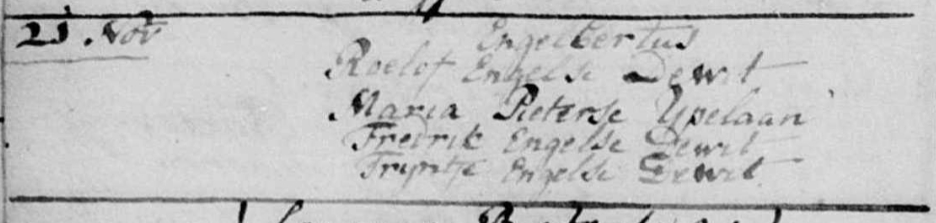 21 Nov Engelbertus
Roelof Engelse Dewit
Maria Pieterse Ypelaan
Fredrik Engelse Dewit
Engelse Dewit